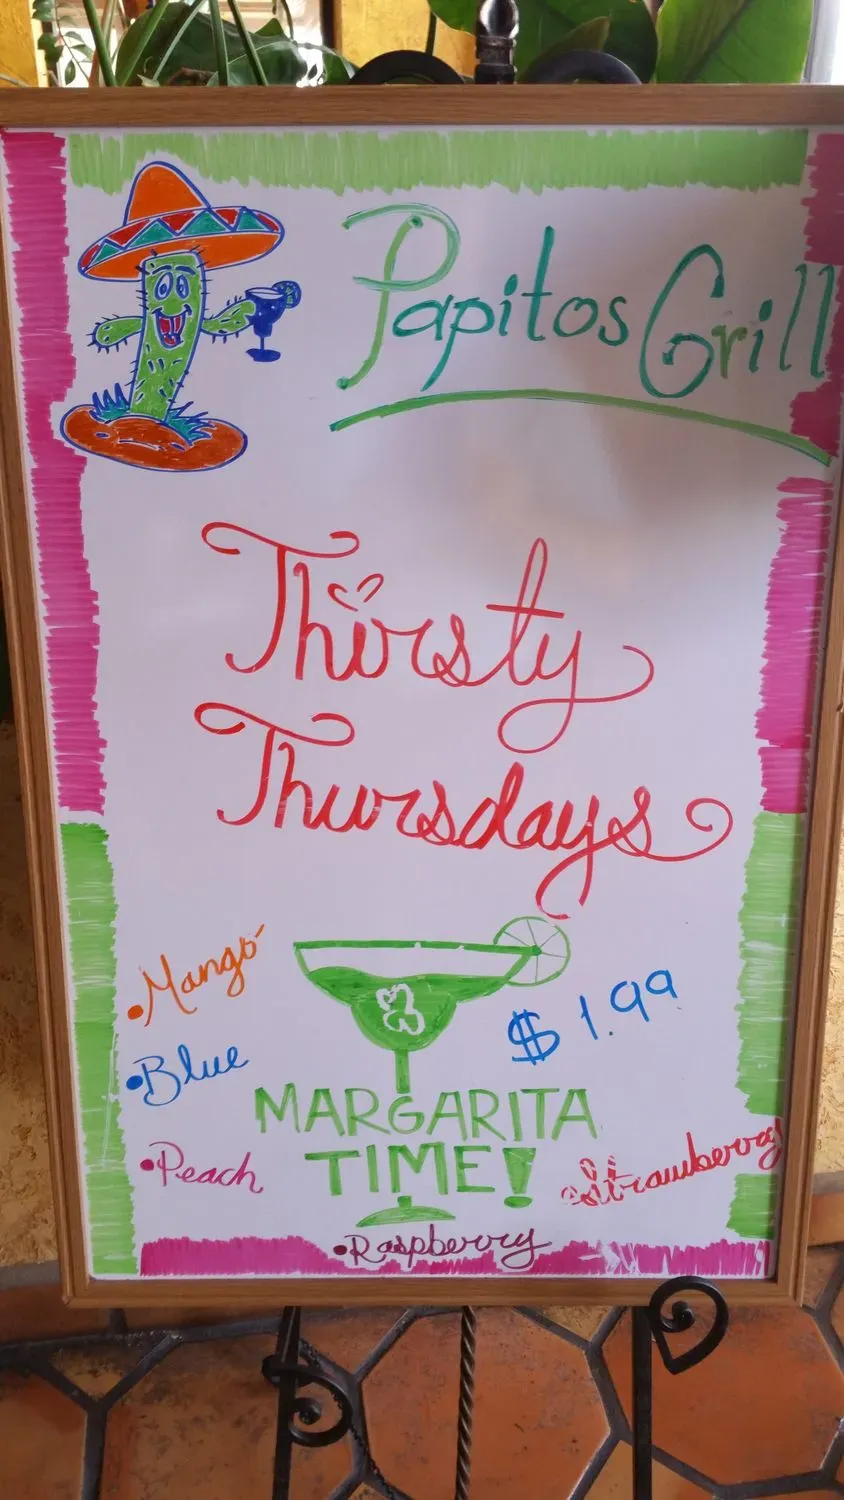 Papitos Grill
Thirsty
Thursdays
•Mango
$1.99
•Blue
MARGARITA
TIME!
•Peach
•Strawberry
•Raspberry